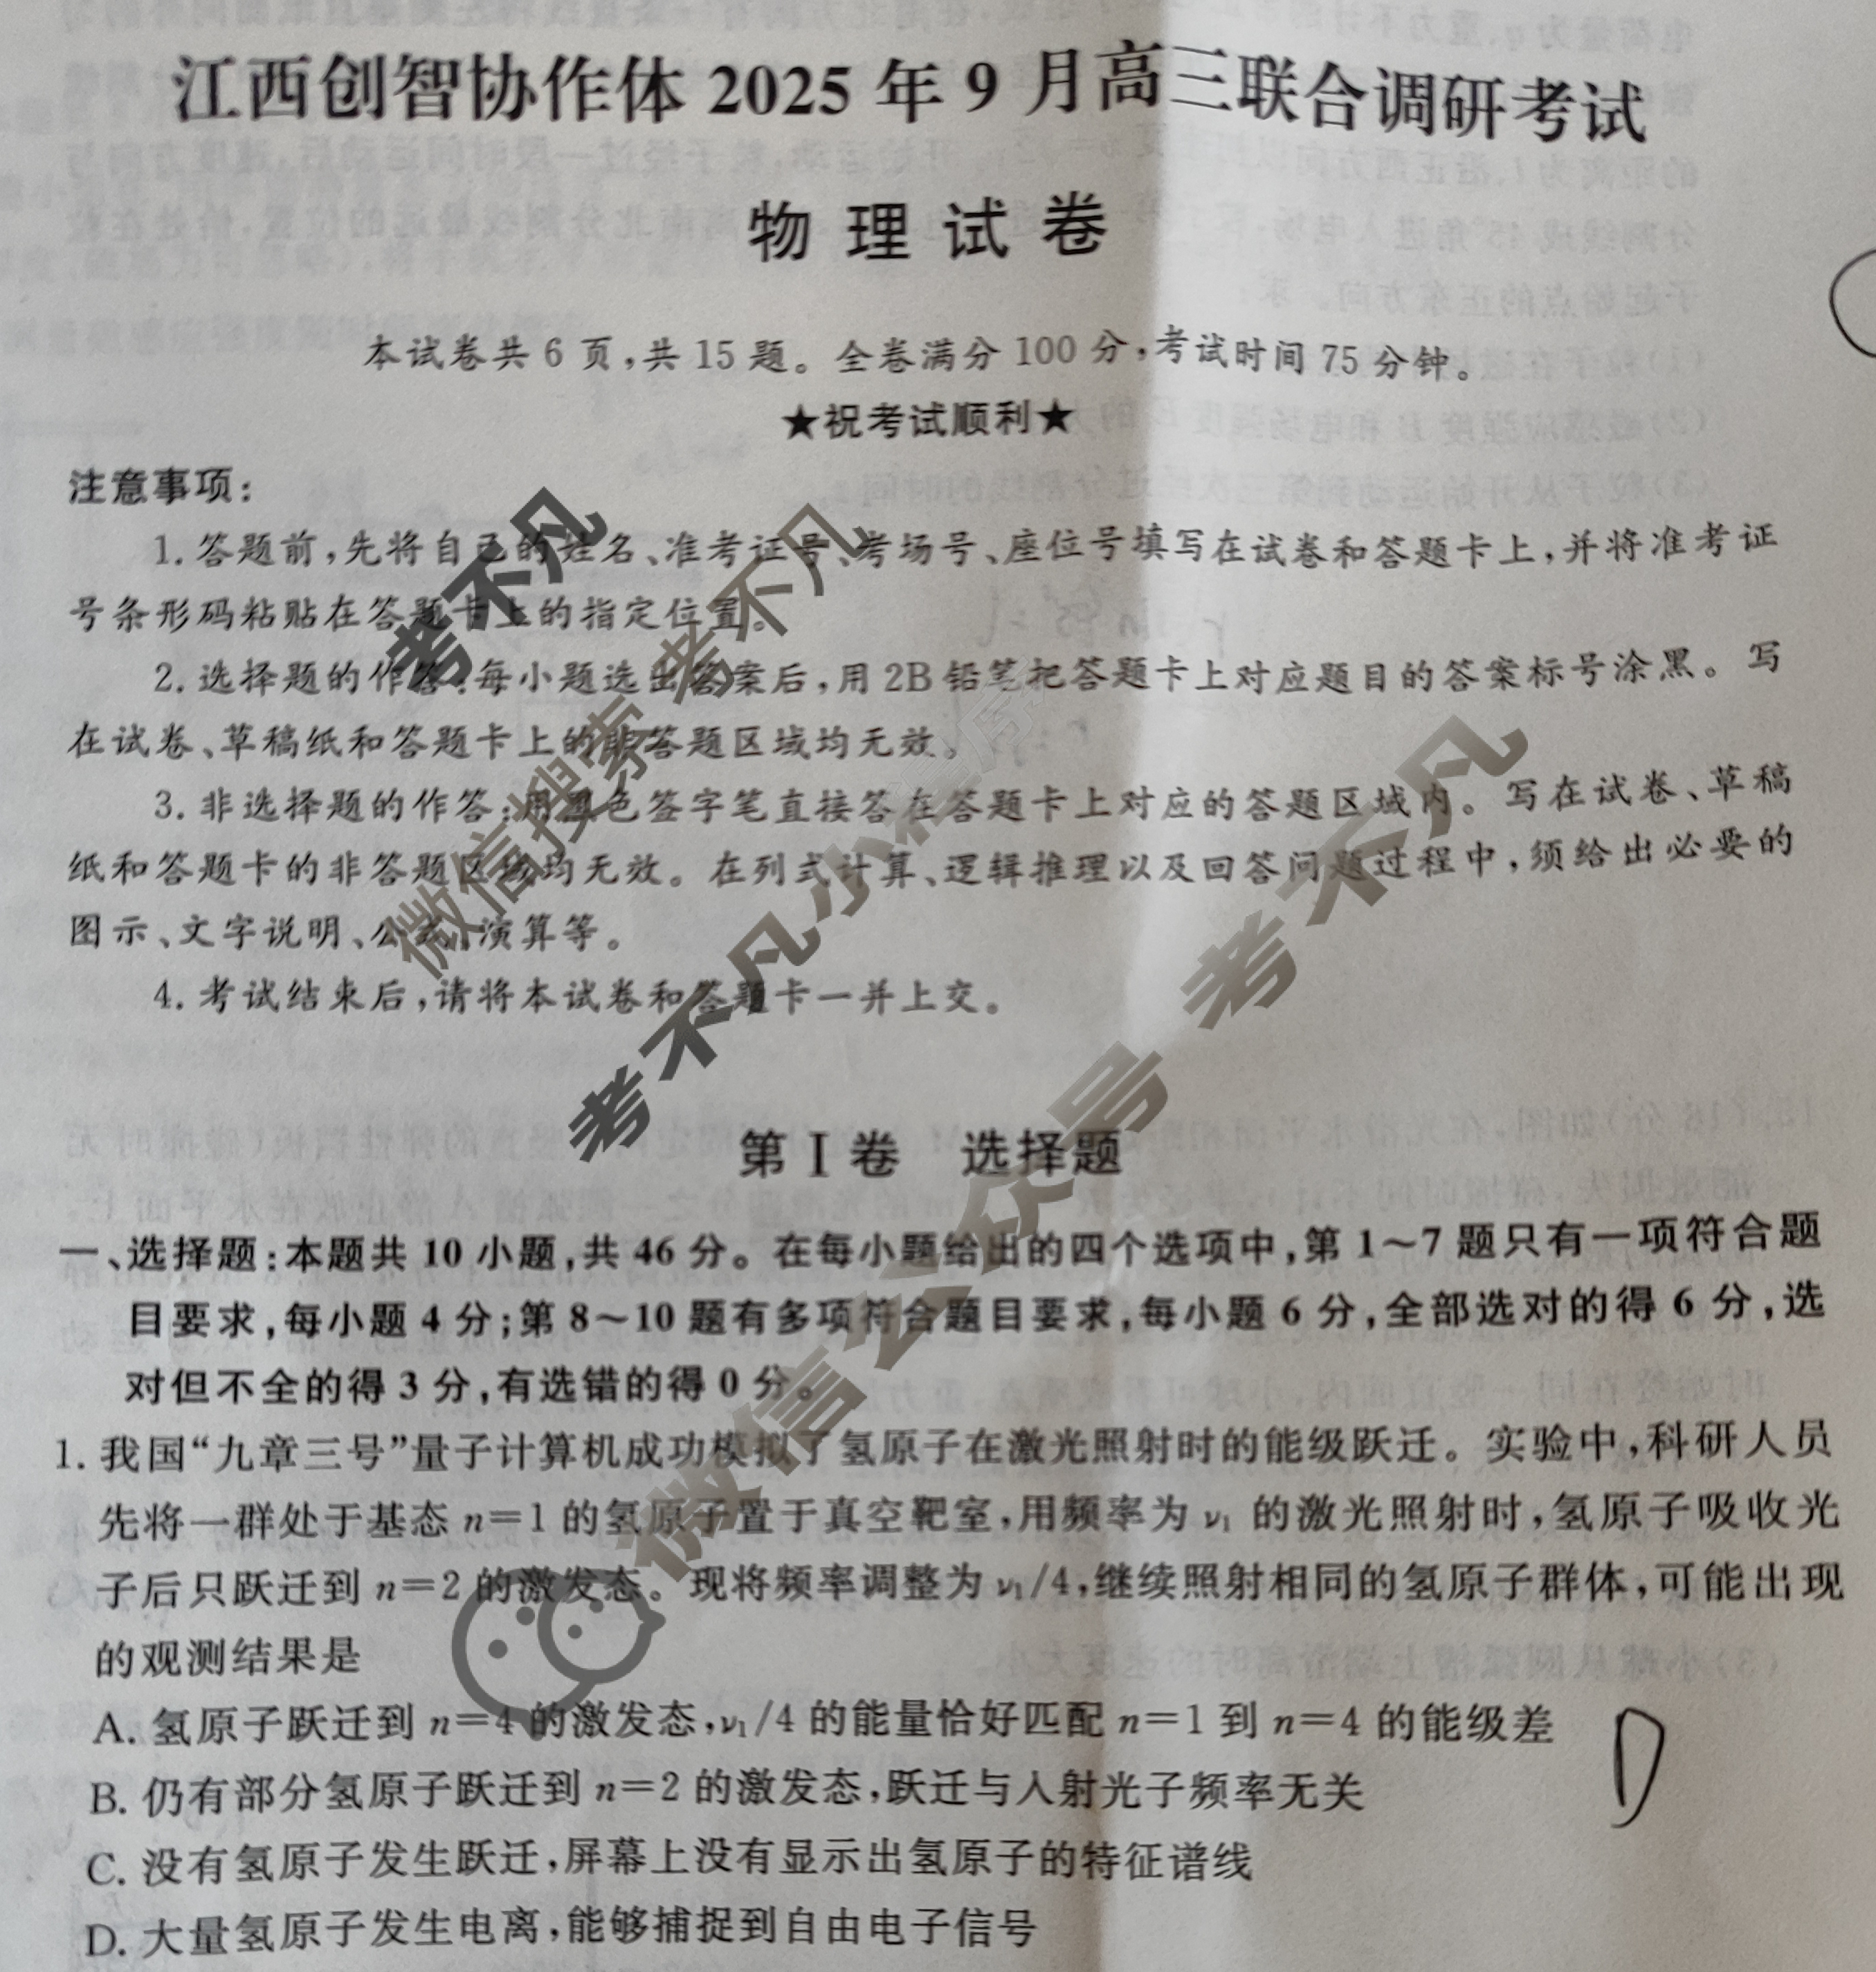 江西创智协作体 2025 年 9 月高三联合调研考试
物理试卷
本试卷共 6 页,共 15 题。全卷满分 100 分,考试时间 75 分钟。
★祝考试顺利★
注意事项:
1. 答题前,先将自己的姓名、准考证号、考场号、座位号填写在试卷和答题卡上,并将准考证
号条形码粘贴在答题卡上的指定位置。
2. 选择题的作答:每小题选出答案后,用 2B 铅笔把答题卡上对应题目的答案标号涂黑。写
在试卷、草稿纸和答题卡上的非答题区域均无效。
3. 非选择题的作答:用黑色签字笔直接答在答题卡上对应的答题区域内。写在试卷、草稿
纸和答题卡的非答题区域均无效。在列式计算、逻辑推理以及回答问题过程中,须给出必要的
图示、文字说明、公式、演算等。
4. 考试结束后,请将本试卷和答题卡一并上交。
第 I 卷 选择题
一、选择题:本题共 10 小题,共 46 分。在每小题给出的四个选项中,第 1～7 题只有一项符合题
目要求,每小题 4 分;第 8～10 题有多项符合题目要求,每小题 6 分,全部选对的得 6 分,选
对但不全的得 3 分,有选错的得 0 分。
1. 我国“九章三号”量子计算机成功模拟了氢原子在激光照射时的能级跃迁。实验中,科研人员
先将一群处于基态 n=1 的氢原子置于真空靶室,用频率为 ν₁ 的激光照射时,氢原子吸收光
子后只跃迁到 n=2 的激发态。现将频率调整为 ν₁/4,继续照射相同的氢原子群体,可能出现
的观测结果是
A. 氢原子跃迁到 n=4 的激发态,ν₁/4 的能量恰好匹配 n=1 到 n=4 的能级差
B. 仍有部分氢原子跃迁到 n=2 的激发态,跃迁与入射光子频率无关
C. 没有氢原子发生跃迁,屏幕上没有显示出氢原子的特征谱线
D. 大量氢原子发生电离,能够捕捉到自由电子信号
D
考不凡
微信搜索 考不凡
考不凡小程序
微信公众号 考不凡